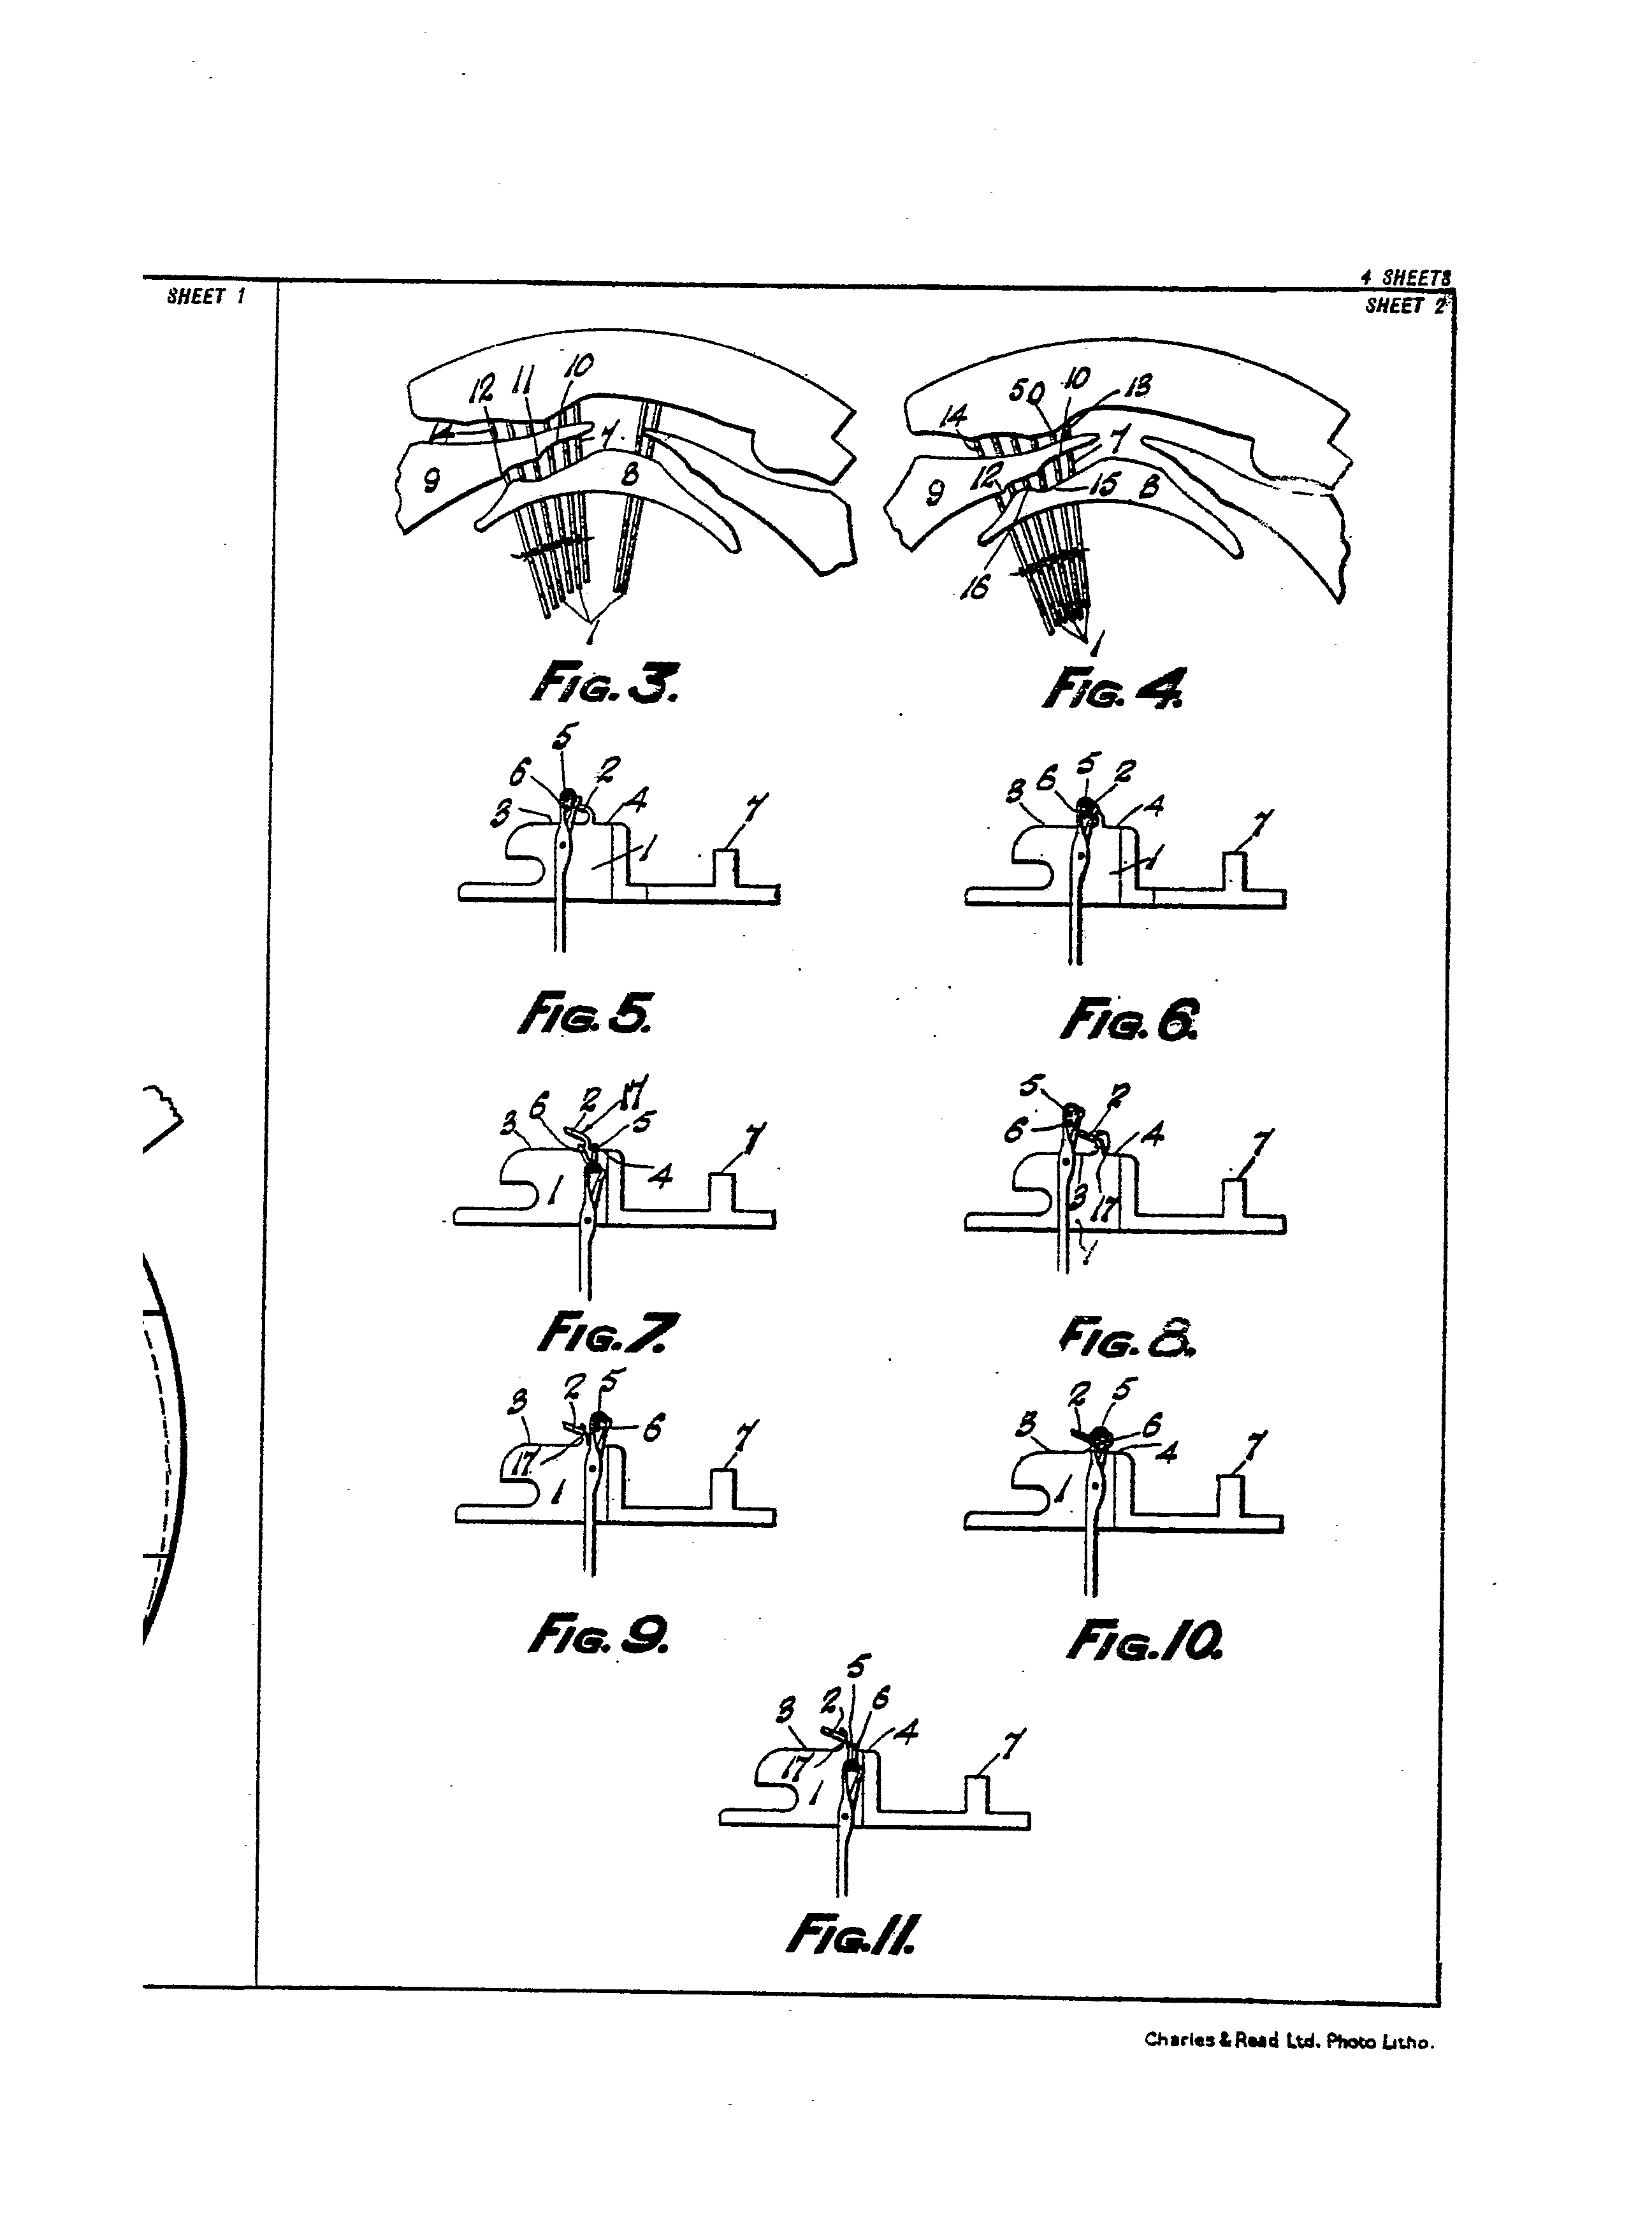 4 SHEETS
SHEET 1
SHEET 2
12 11 10
14 7
9 8
1
FIG. 3.
50 10 13
14 7
9 12 15 8
16
1
FIG. 4.
5
6 2
3 4 7
1
FIG. 5.
5 2
3 6 4 7
1
FIG. 6.
6 2 17
3 5 7
1 4
FIG. 7.
5 2
6 4 7
3 17
1
FIG. 8.
3 2 5
6 7
17
1
FIG. 9.
2 5
3 6 7
4
1
FIG. 10.
5
3 2 6
4 7
17
1
FIG. 11.
Charles & Read Ltd. Photo Litho.